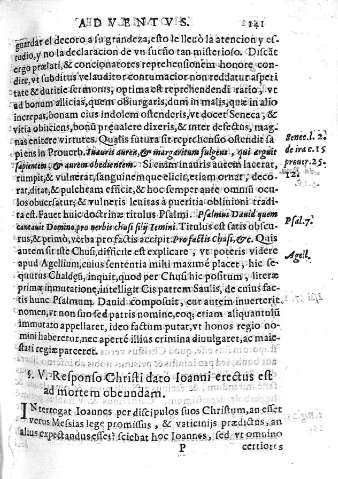 ADVENTVS. 241
guardar el decoro a su grandeza, esto le lleuò la atencion y es-
tudio, y no la declaracion de vn sueño tan misterioso. Discãt
ergo prælati, & concionatores reprehensionem honore con-
dire, vt subditus vel auditor contumacior non reddatur asperi
tate & duritie sermonis, optima est reprehendendi ratio, vt
ad bonum allicias, quem obiurgaris, dum in malis, quæ in alio
increpas, bonam eius indolem ostenderis, vt docet Seneca; &
vitia obiiciens, bonũ præualere dixeris, & inter defectus, mag-
nas enitere virtutes. Qualis futura sit reprehensio ostendit sa
piens in Prouerb. Inauris aurea, & margaritum fulgens, qui arguit
sapientem, & aurem obedientem. Si enim inauris aurem lacerat,
rumpit, & vulnerat, sanguinem que elicit, etiam ornat, decò-
rat, ditat, & pulchram efficit, & hoc semper ante omniũ ocu-
los obuersatur, & vulneris leuitas à pueritia obliuioni tradita
dita est. Fauet huic doctrinæ titulus Psalmi. Psalmus Dauid quem
cantauit Domino, pro verbis chusi filij Iemini. Titulus est satis obscu-
rus, & primò, verba pro factis accipit. Pro factis Chusi, &c. Quis
autem sit iste Chusi, difficile est explicare, vt poteris videre
apud Agellium, cuius sententia mihi maximè placet, hic se-
quutus Chaldeũ, inquit, quod per Chus hic positum, literæ
primæ immutatione, intelligit Cis patrem Saulis, de cuius fac-
tis hunc Psalmum Dauid composuit, cur autem inuerterit
nomen, vt non suo sed patris nomine, eoq; etiam aliquantulũ
immutato appellaret, ideo factum putat, vt honos regio no-
mini haberetur, nec apertè illius crimina diuulgaret, ac maie-
stati regiæ parceret.
Senec. l. 2.
de ira c. 15
prouer. 25.
12.
Psal. 7.
Agell.
§. V. Responso Christi dato Ioanni erectus est
ad mortem obeundam.
INterrogat Ioannes per discipulos suos Christum, an esset
verus Messias lege promissus, & vaticinijs prædictus, an
alius expectandus esset? sciebat hoc Ioannes, sed vt omnino
P certiores